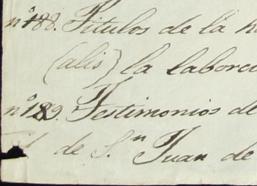 nº 188. Titulos de la
(alis) la labor
nº 189. Testimonios de
de S.n Juan de